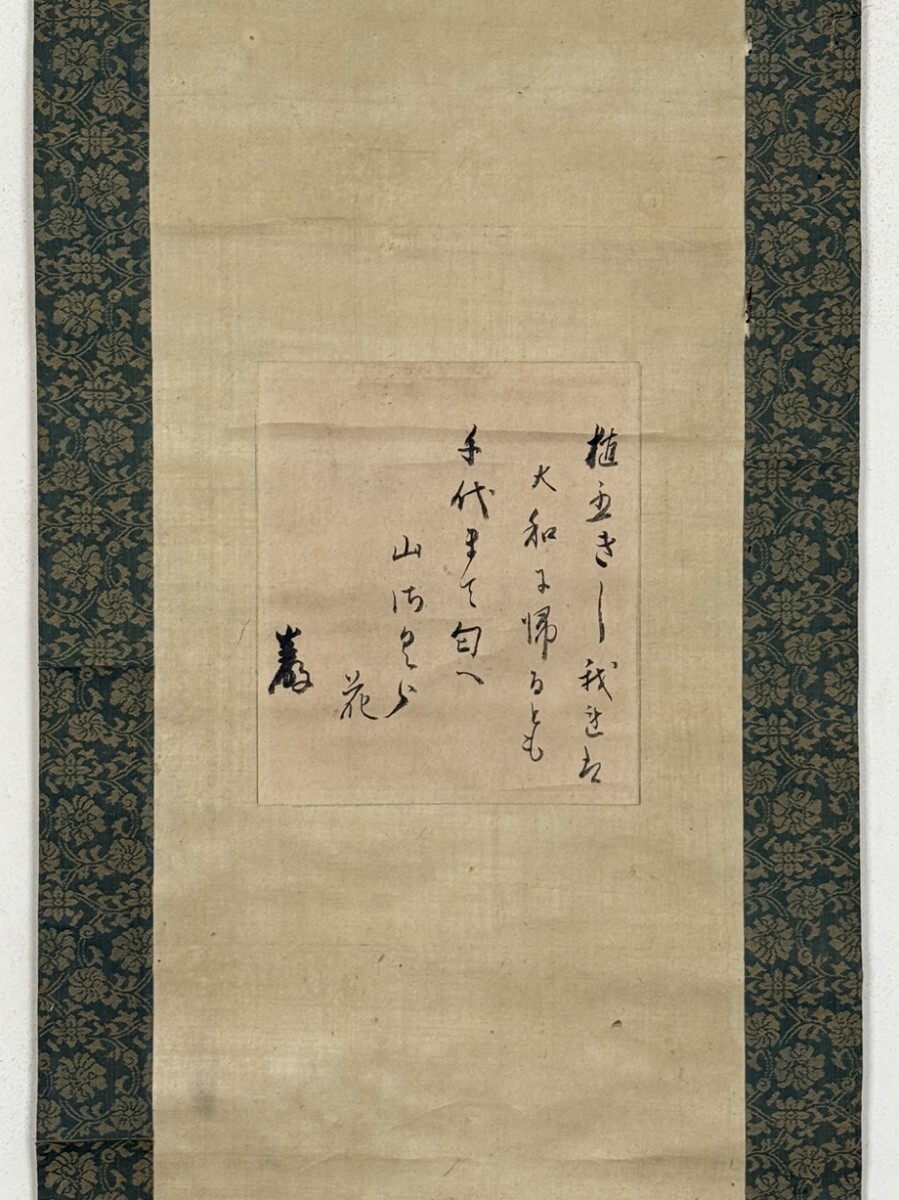 植置きし我連者
大和に帰るとも
千代まて匂へ
山さくら
花
巌